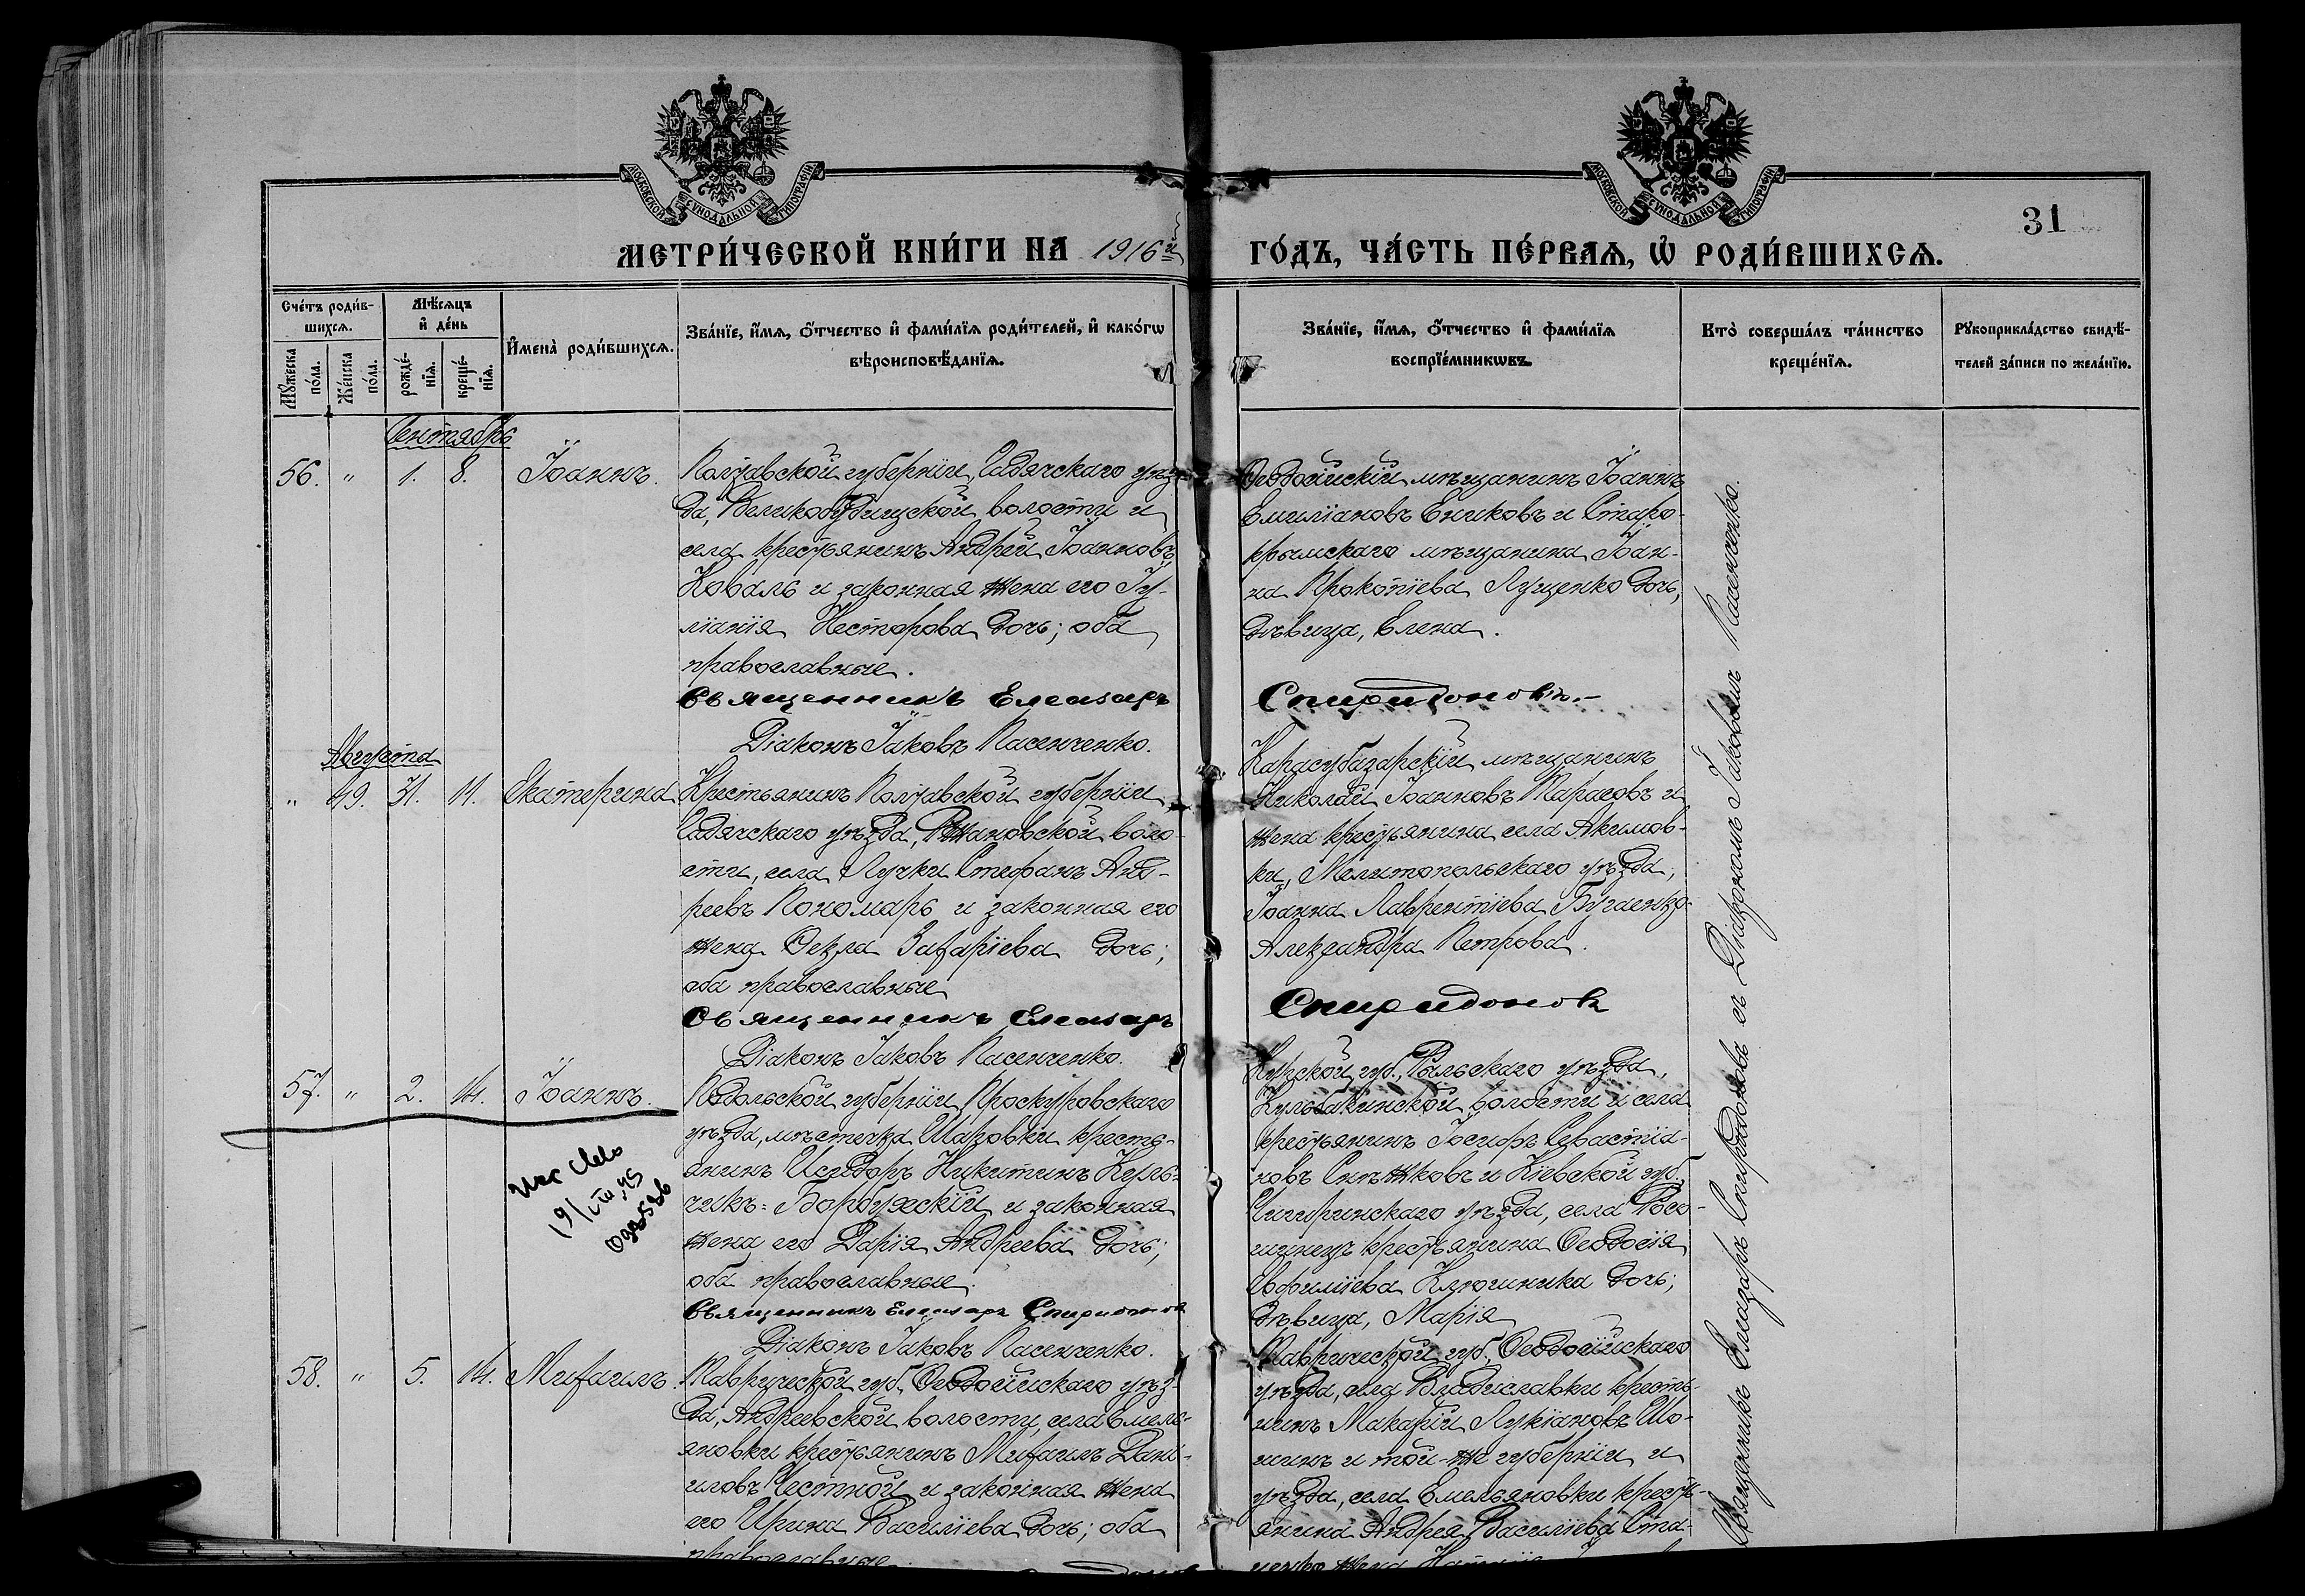 МОСКОВСКОЙ СѴНОДАЛЬНОЙ ТИПОГРАФІИ
МОСКОВСКОЙ СѴНОДАЛЬНОЙ ТИПОГРАФІИ
31
МЕТРИ́ЧЕСКОЙ КНИ́ГИ НА 1916й
ГО́ДЪ, ЧА́СТЬ ПЕ́РВАѦ, Ѡ҆ РОДИ́ВШИХСѦ.
Сче́тъ роди́в-
шихсѧ.
Мꙋ́жеска по́ла.
Же́нска по́ла.
Мѣ́сѧцъ
и҆ де́нь
рожде́-
нїѧ.
креще́-
нїѧ.
И҆мена̀ роди́вшихсѧ.
Зва́нїе, и҆́мѧ, ѻ҆́тчество и҆ фами́лїѧ роди́телей, и҆ како́гѡ
вѣроисповѣ́данїѧ.
Зва́нїе, и҆́мѧ, ѻ҆́тчество и҆ фами́лїѧ
воспрїе́мникѡвъ.
Кто̀ соверша́лъ та́инство
креще́нїѧ.
Рꙋкоприкла́дство свидѣ́-
телей за́писи по жела́нїю.
Сентябрь
56. " 1. 8. Іоаннъ.
Полтавской губерніи, Гадячскаго уѣз-
да, Великобудищской волости и
села крестьянинъ Андрей Іоанновъ
Коваль и законная жена его Іу-
ліанія Несторова дочь; оба
православные.
Священникъ Елеазаръ
Діаконъ Іаковъ Пасенченко.
Ѳеодосійскій мѣщанинъ Іоаннъ
Емиліановъ Ениковъ и Старо-
крымскаго мѣщанина Іоан-
на Прокопіева Луценко дочь,
дѣвица, Елена.
Спиридоновъ.
Августа
" 49. 31. 11. Екатерина
Крестьянинъ Полтавской губерніи
Гадячскаго уѣзда, Рашановской воло-
сти, села Лучки Стефанъ Анд-
реевъ Пономарь и законная его
жена Ѳекла Захаріева дочь;
оба православные
Священникъ Елеазаръ
Діаконъ Іаковъ Пасенченко.
Карасубазарскій мѣщанинъ
Николай Іоанновъ Тарасовъ и
жена крестьянина села Акимов-
ки, Мелитопольскаго уѣзда,
Іоанна Лаврентіева Бугаенко
Александра Петрова.
Спиридонов
57. " 2. 14. Іоаннъ.
Подольской губерніи Проскуровскаго
уѣзда, мѣстечка Шаровки кресть-
янинъ Исидоръ Никитинъ Куль-
чикъ-
и законная
жена его Дарія Андреева дочь;
оба православные.
Священникъ Елеазаръ Спиридонов
Діаконъ Іаковъ Пасенченко.
19/VIII 45
Курской губ., Рыльскаго уѣзда,
Кульбакинской волости и села
крестьянинъ Іосифъ Севастіа-
новъ Снѣжковъ и Кіевской губ.,
Чигиринскаго уѣзда, села Росо-
шинецъ крестьянина Ѳеодосія
Евфиміева Ключника дочь;
дѣвица, Марія
58. " 5. 14. Михаилъ.
Таврической губ. Ѳеодосійскаго уѣз-
да, Андреевской волости, села Емель-
яновки крестьянинъ Михаилъ Дані-
иловъ Честной и законная жена
его Ирина Василіева дочь; оба
православные.
Таврической губ., Ѳеодосійскаго
уѣзда, села Владиславки кресть-
нинъ Макарій Лукіановъ Шо-
шинъ и той-же губерніи и
уѣзда, села Емельяновки кресть-
янина Андрея Василіева Ста-
Священникъ Елеазаръ Спиридоновъ съ Діакономъ Іаковомъ Пасенченко.